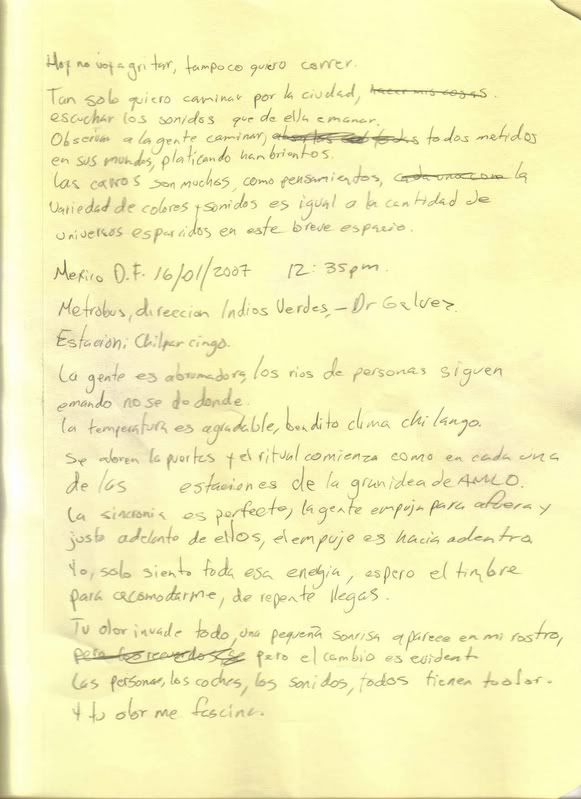 Hoy no voy a gritar, tampoco quiero correr.
Tan solo quiero caminar por la ciudad, hacer mis cosas.
escuchar los sonidos que de ella emanar.
Observar a la gente caminar, todos metidos
en sus mundos, platicando hambrientos.
Los carros son muchos, como pensamientos, cada uno con la
Variedad de colores y sonidos es igual a la cantidad de
universos esparcidos en este breve espacio.
Mexico D.F. 16/01/2007 12:35pm.
Metrobus, direccion Indios Verdes, - Dr Galvez.
Estacion: Chilpancingo.
La gente es abrumadora, los rios de personas siguen
emanando no se de donde.
la temperatura es agradable, bendito clima chilango.
Se abren la puertas y el ritual comienza como en cada una
de las estaciones de la gran idea de AMLO.
La sincronia es perfecta, la gente empuja para afuera y
justo adelante de ellos, el empuje es hacia adentro
Yo, solo siento toda esa energia, espero el timbre
para acomodarme, de repente llegas.
Tu olor invade todo, una pequeña sonrisa aparece en mi rostro,
pero los recuerdos pero el cambio es evident
Las personas, los coches, los sonidos, todos tienen tu olor.
Y tu olor me fascina.